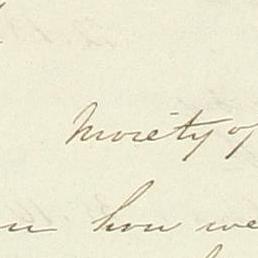 Moiety of
how we